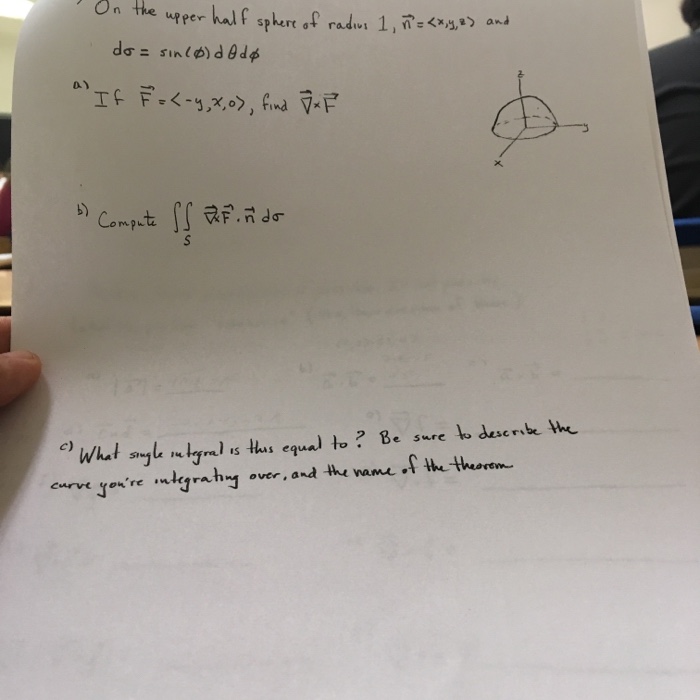 On the upper half sphere of radius 1, n⃗ = <x,y,z> and
dσ = sin(φ) dθ dφ
a) If F⃗ = <-y,x,0>, find ∇⃗×F⃗
z
y
x
b) Compute ∬_S ∇⃗×F⃗ · n⃗ dσ
c) What single integral is this equal to? Be sure to describe the
curve you're integrating over, and the name of the theorem